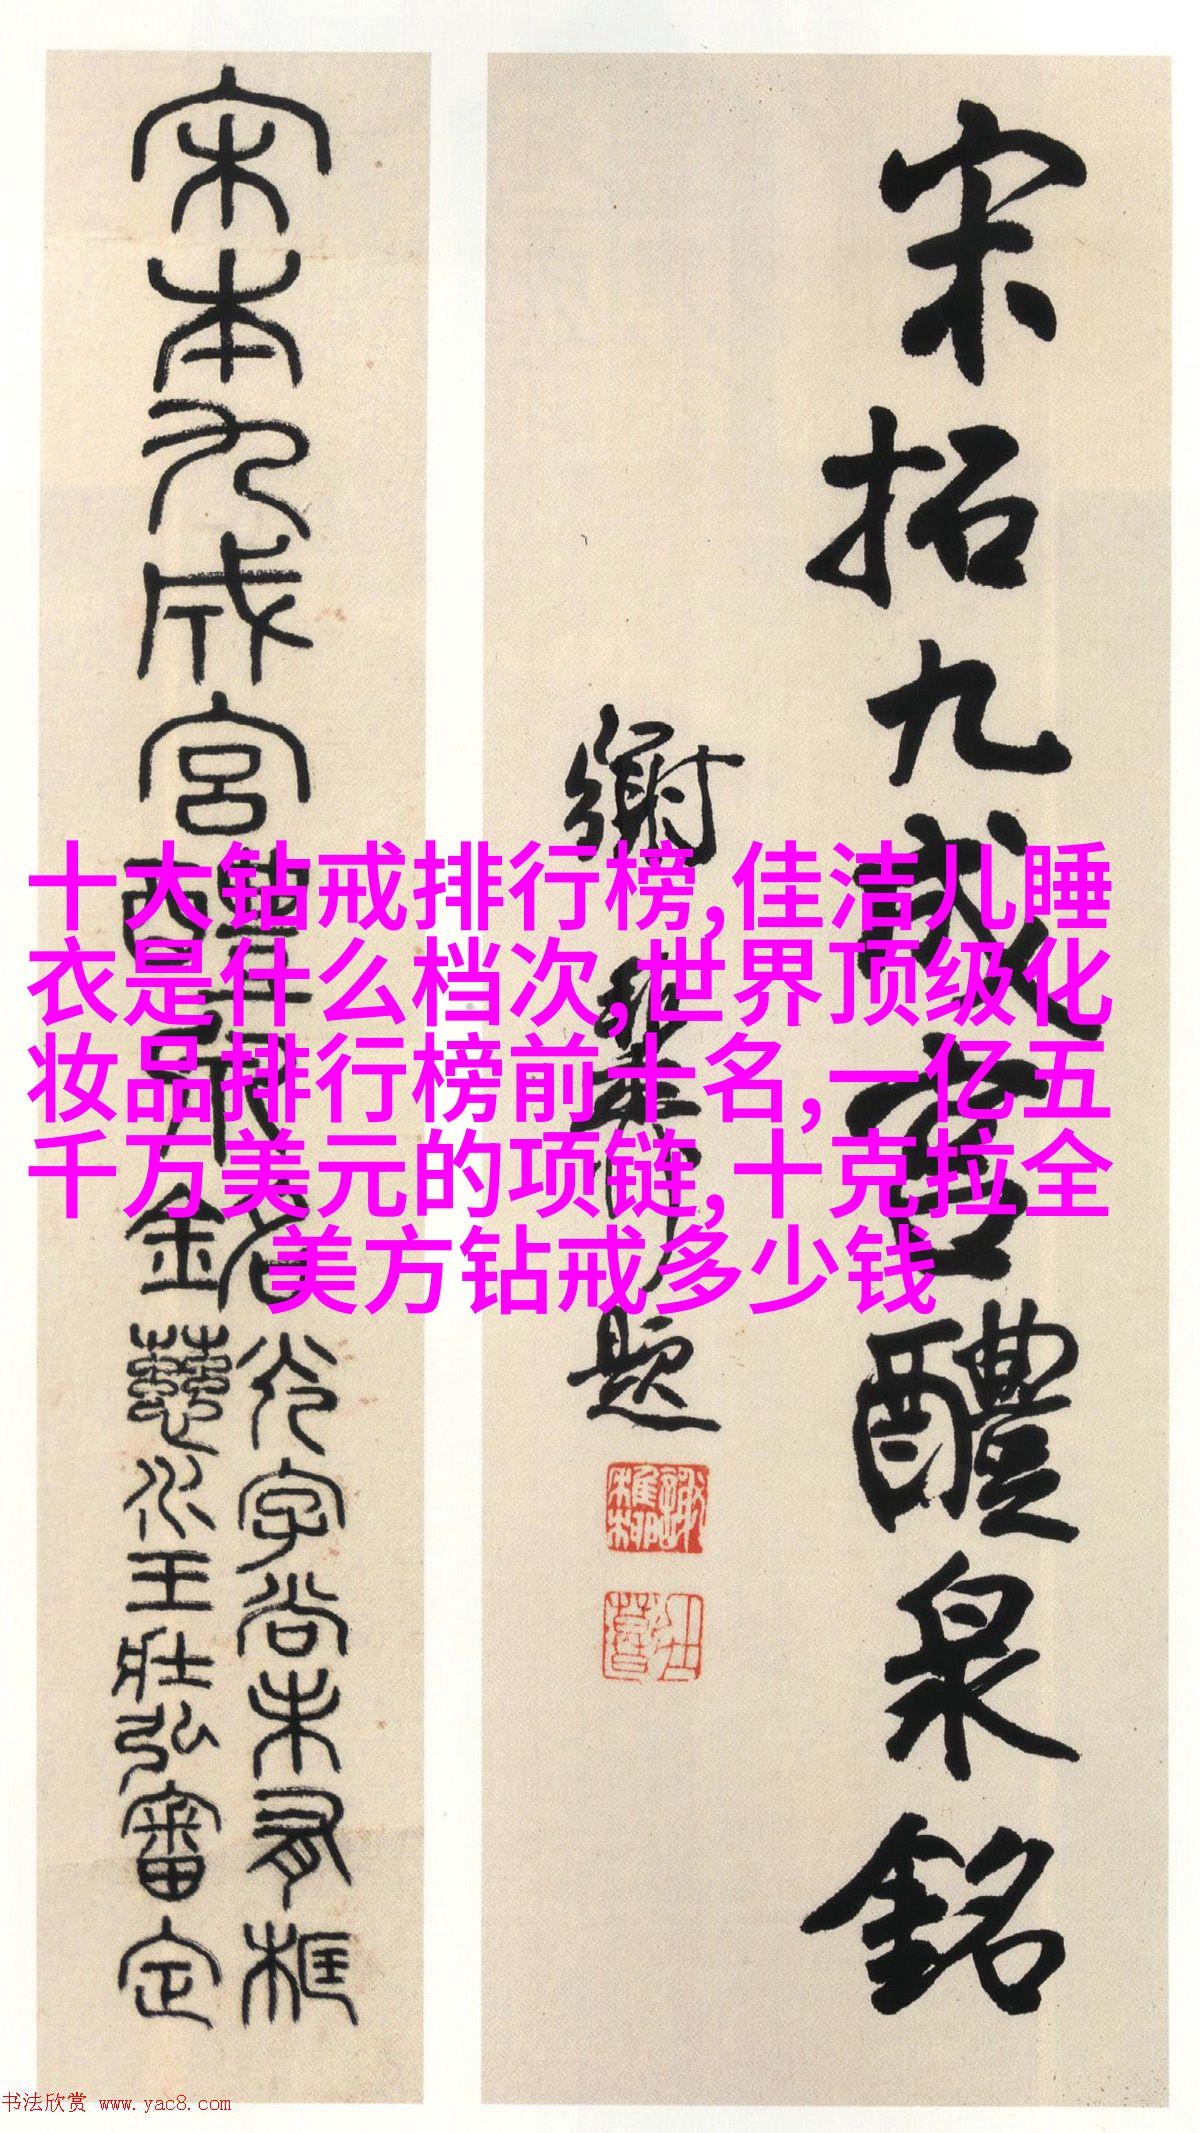 宋拓九成宫醴泉銘
謝稚柳題
宋本九成宮醴泉銘
光字尚未有框
金藝心王壯弘審定
十大钻戒排行榜,佳洁儿睡
衣是什么档次,世界顶级化
妆品排行榜前十名,一亿五
千万美元的项链,十克拉全
美方钻戒多少钱
书法欣赏 www.yac8.com